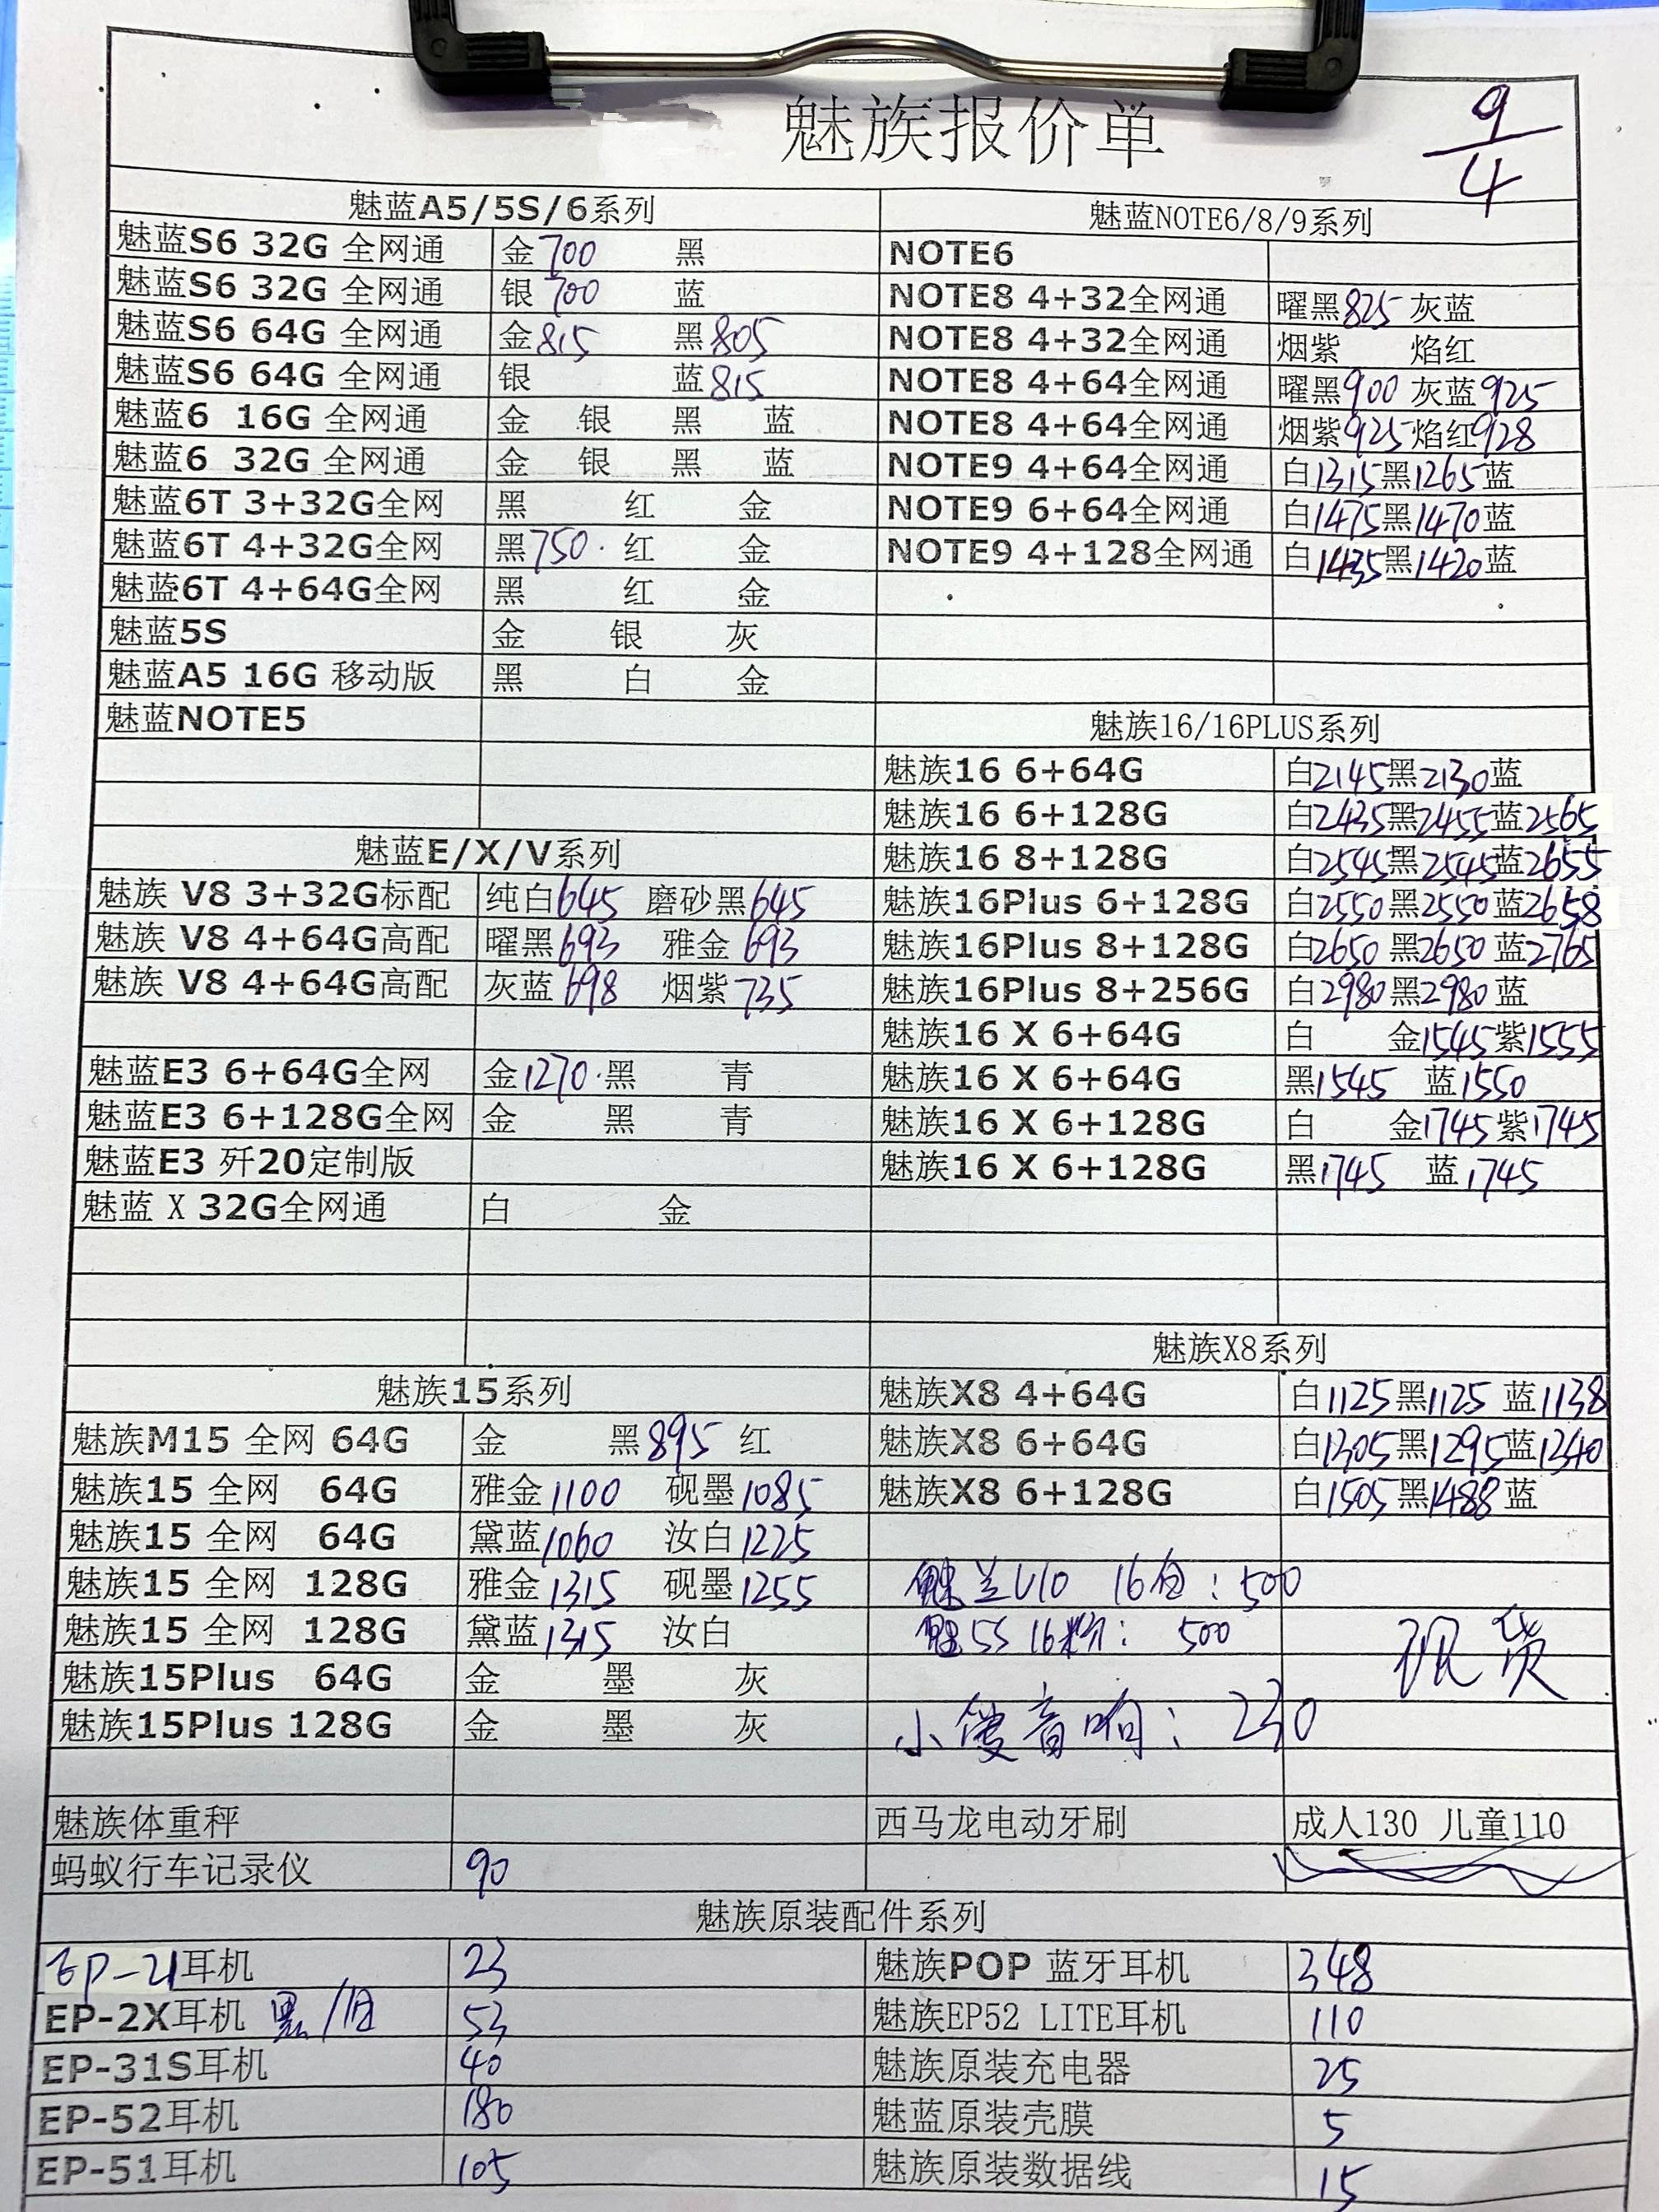 魅族报价单
9/4
魅蓝A5/5S/6系列
魅蓝S6 32G 全网通 金700 黑
魅蓝S6 32G 全网通 银700 蓝
魅蓝S6 64G 全网通 金815 黑805
魅蓝S6 64G 全网通 银 蓝815
魅蓝6 16G 全网通 金 银 黑 蓝
魅蓝6 32G 全网通 金 银 黑 蓝
魅蓝6T 3+32G全网 黑 红 金
魅蓝6T 4+32G全网 黑750· 红 金
魅蓝6T 4+64G全网 黑 红 金
魅蓝5S 金 银 灰
魅蓝A5 16G 移动版 黑 白 金
魅蓝NOTE5
魅蓝E/X/V系列
魅族 V8 3+32G标配 纯白645 磨砂黑645
魅族 V8 4+64G高配 曜黑693 雅金693
魅族 V8 4+64G高配 灰蓝698 烟紫735
魅蓝E3 6+64G全网 金1270·黑 青
魅蓝E3 6+128G全网 金 黑 青
魅蓝E3 歼20定制版
魅蓝 X 32G全网通 白 金
魅族15系列
魅族M15 全网 64G 金 黑895 红
魅族15 全网 64G 雅金1100 砚墨1085
魅族15 全网 64G 黛蓝1060 汝白1225
魅族15 全网 128G 雅金1315 砚墨1255
魅族15 全网 128G 黛蓝1315 汝白
魅族15Plus 64G 金 墨 灰
魅族15Plus 128G 金 墨 灰
魅族体重秤
蚂蚁行车记录仪 90
魅蓝NOTE6/8/9系列
NOTE6
NOTE8 4+32全网通 曜黑825 灰蓝
NOTE8 4+32全网通 烟紫 焰红
NOTE8 4+64全网通 曜黑900 灰蓝925
NOTE8 4+64全网通 烟紫925 焰红928
NOTE9 4+64全网通 白1315黑1265蓝
NOTE9 6+64全网通 白1475黑1470蓝
NOTE9 4+128全网通 白1435黑1420蓝
魅族16/16PLUS系列
魅族16 6+64G 白2145黑2130蓝
魅族16 6+128G 白2435黑2455蓝2565
魅族16 8+128G 白2545黑2545蓝2655
魅族16Plus 6+128G 白2550黑2550蓝2658
魅族16Plus 8+128G 白2650 黑2650 蓝2765
魅族16Plus 8+256G 白2980黑2980 蓝
魅族16 X 6+64G 白 金1545紫1555
魅族16 X 6+64G 黑1545 蓝1550
魅族16 X 6+128G 白 金1745紫1745
魅族16 X 6+128G 黑1745 蓝1745
魅族X8系列
魅族X8 4+64G 白1125黑1125 蓝1138
魅族X8 6+64G 白1305黑1295蓝1340
魅族X8 6+128G 白1505黑1488蓝
魅兰U10 16白：500
魅5S 16粉： 500
现货
小傻音响： 230
西马龙电动牙刷 成人130 儿童110
魅族原装配件系列
EP-21耳机 23
EP-2X耳机 黑/白 53
EP-31S耳机 40
EP-52耳机 180
EP-51耳机 105
魅族POP 蓝牙耳机 348
魅族EP52 LITE耳机 110
魅族原装充电器 25
魅蓝原装壳膜 5
魅族原装数据线 15